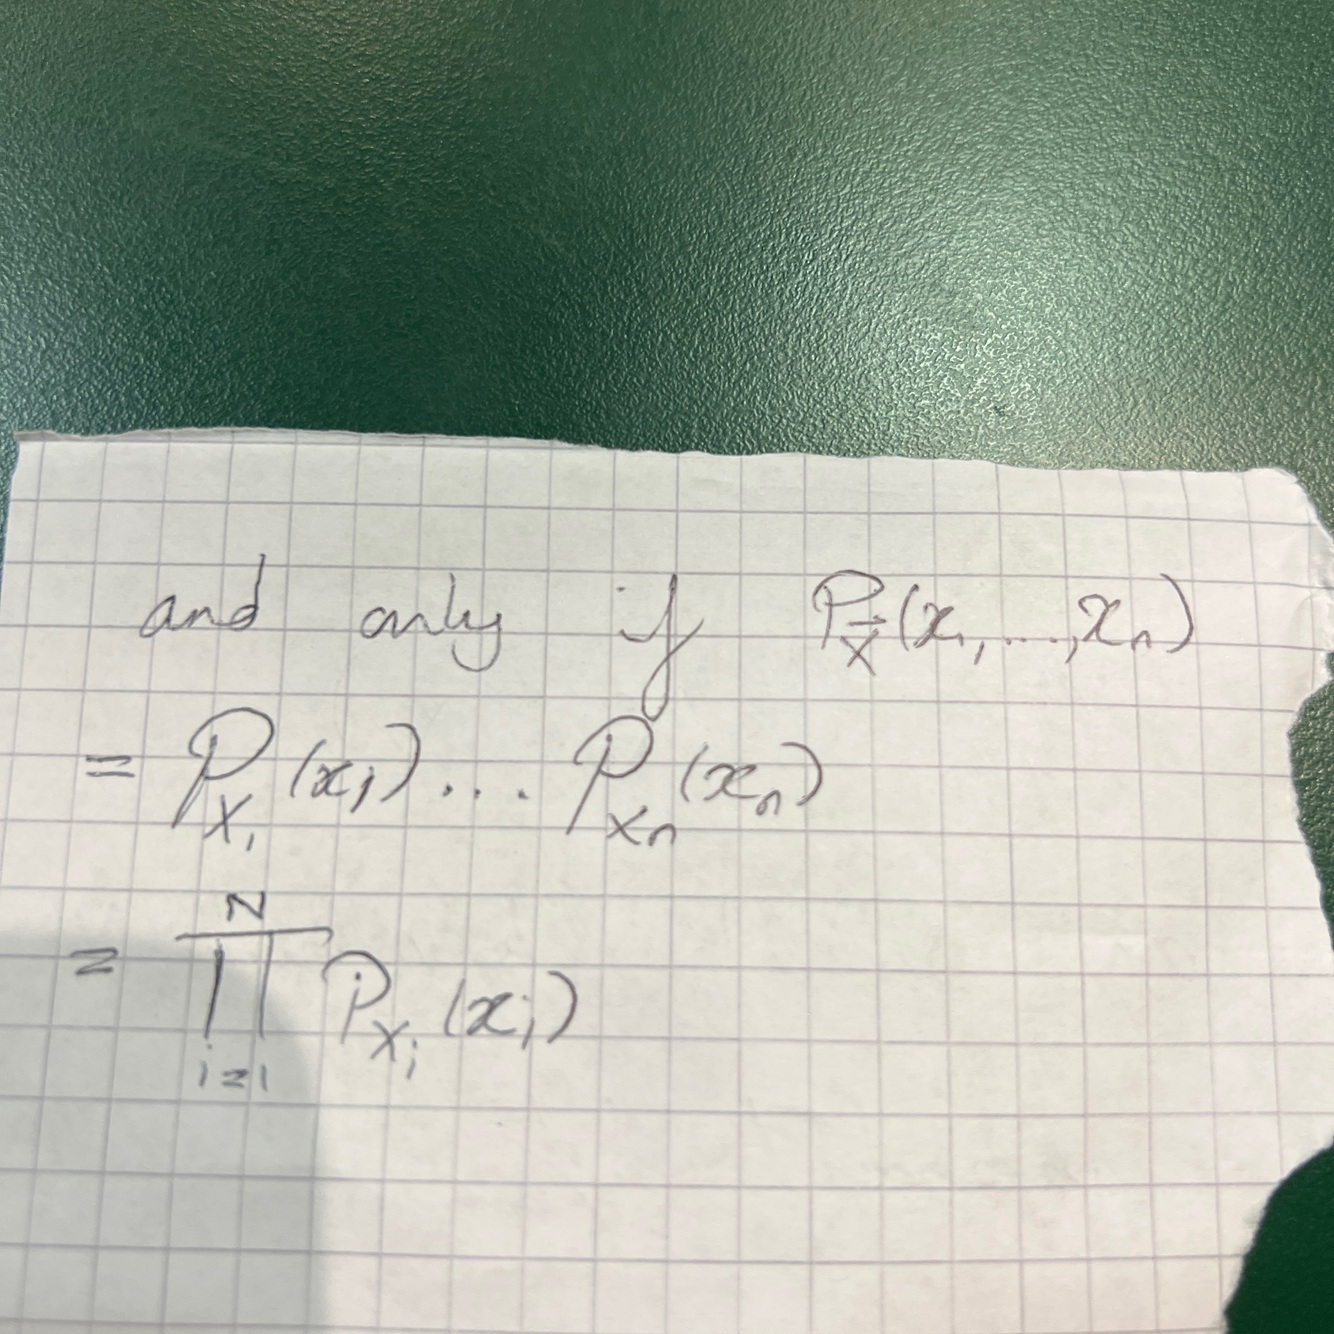 and only if P_X⃗(x₁,...,xₙ)
= P_X₁(x₁)... P_Xₙ(xₙ)
= ∏_{i=1}^{N} P_Xᵢ(xᵢ)